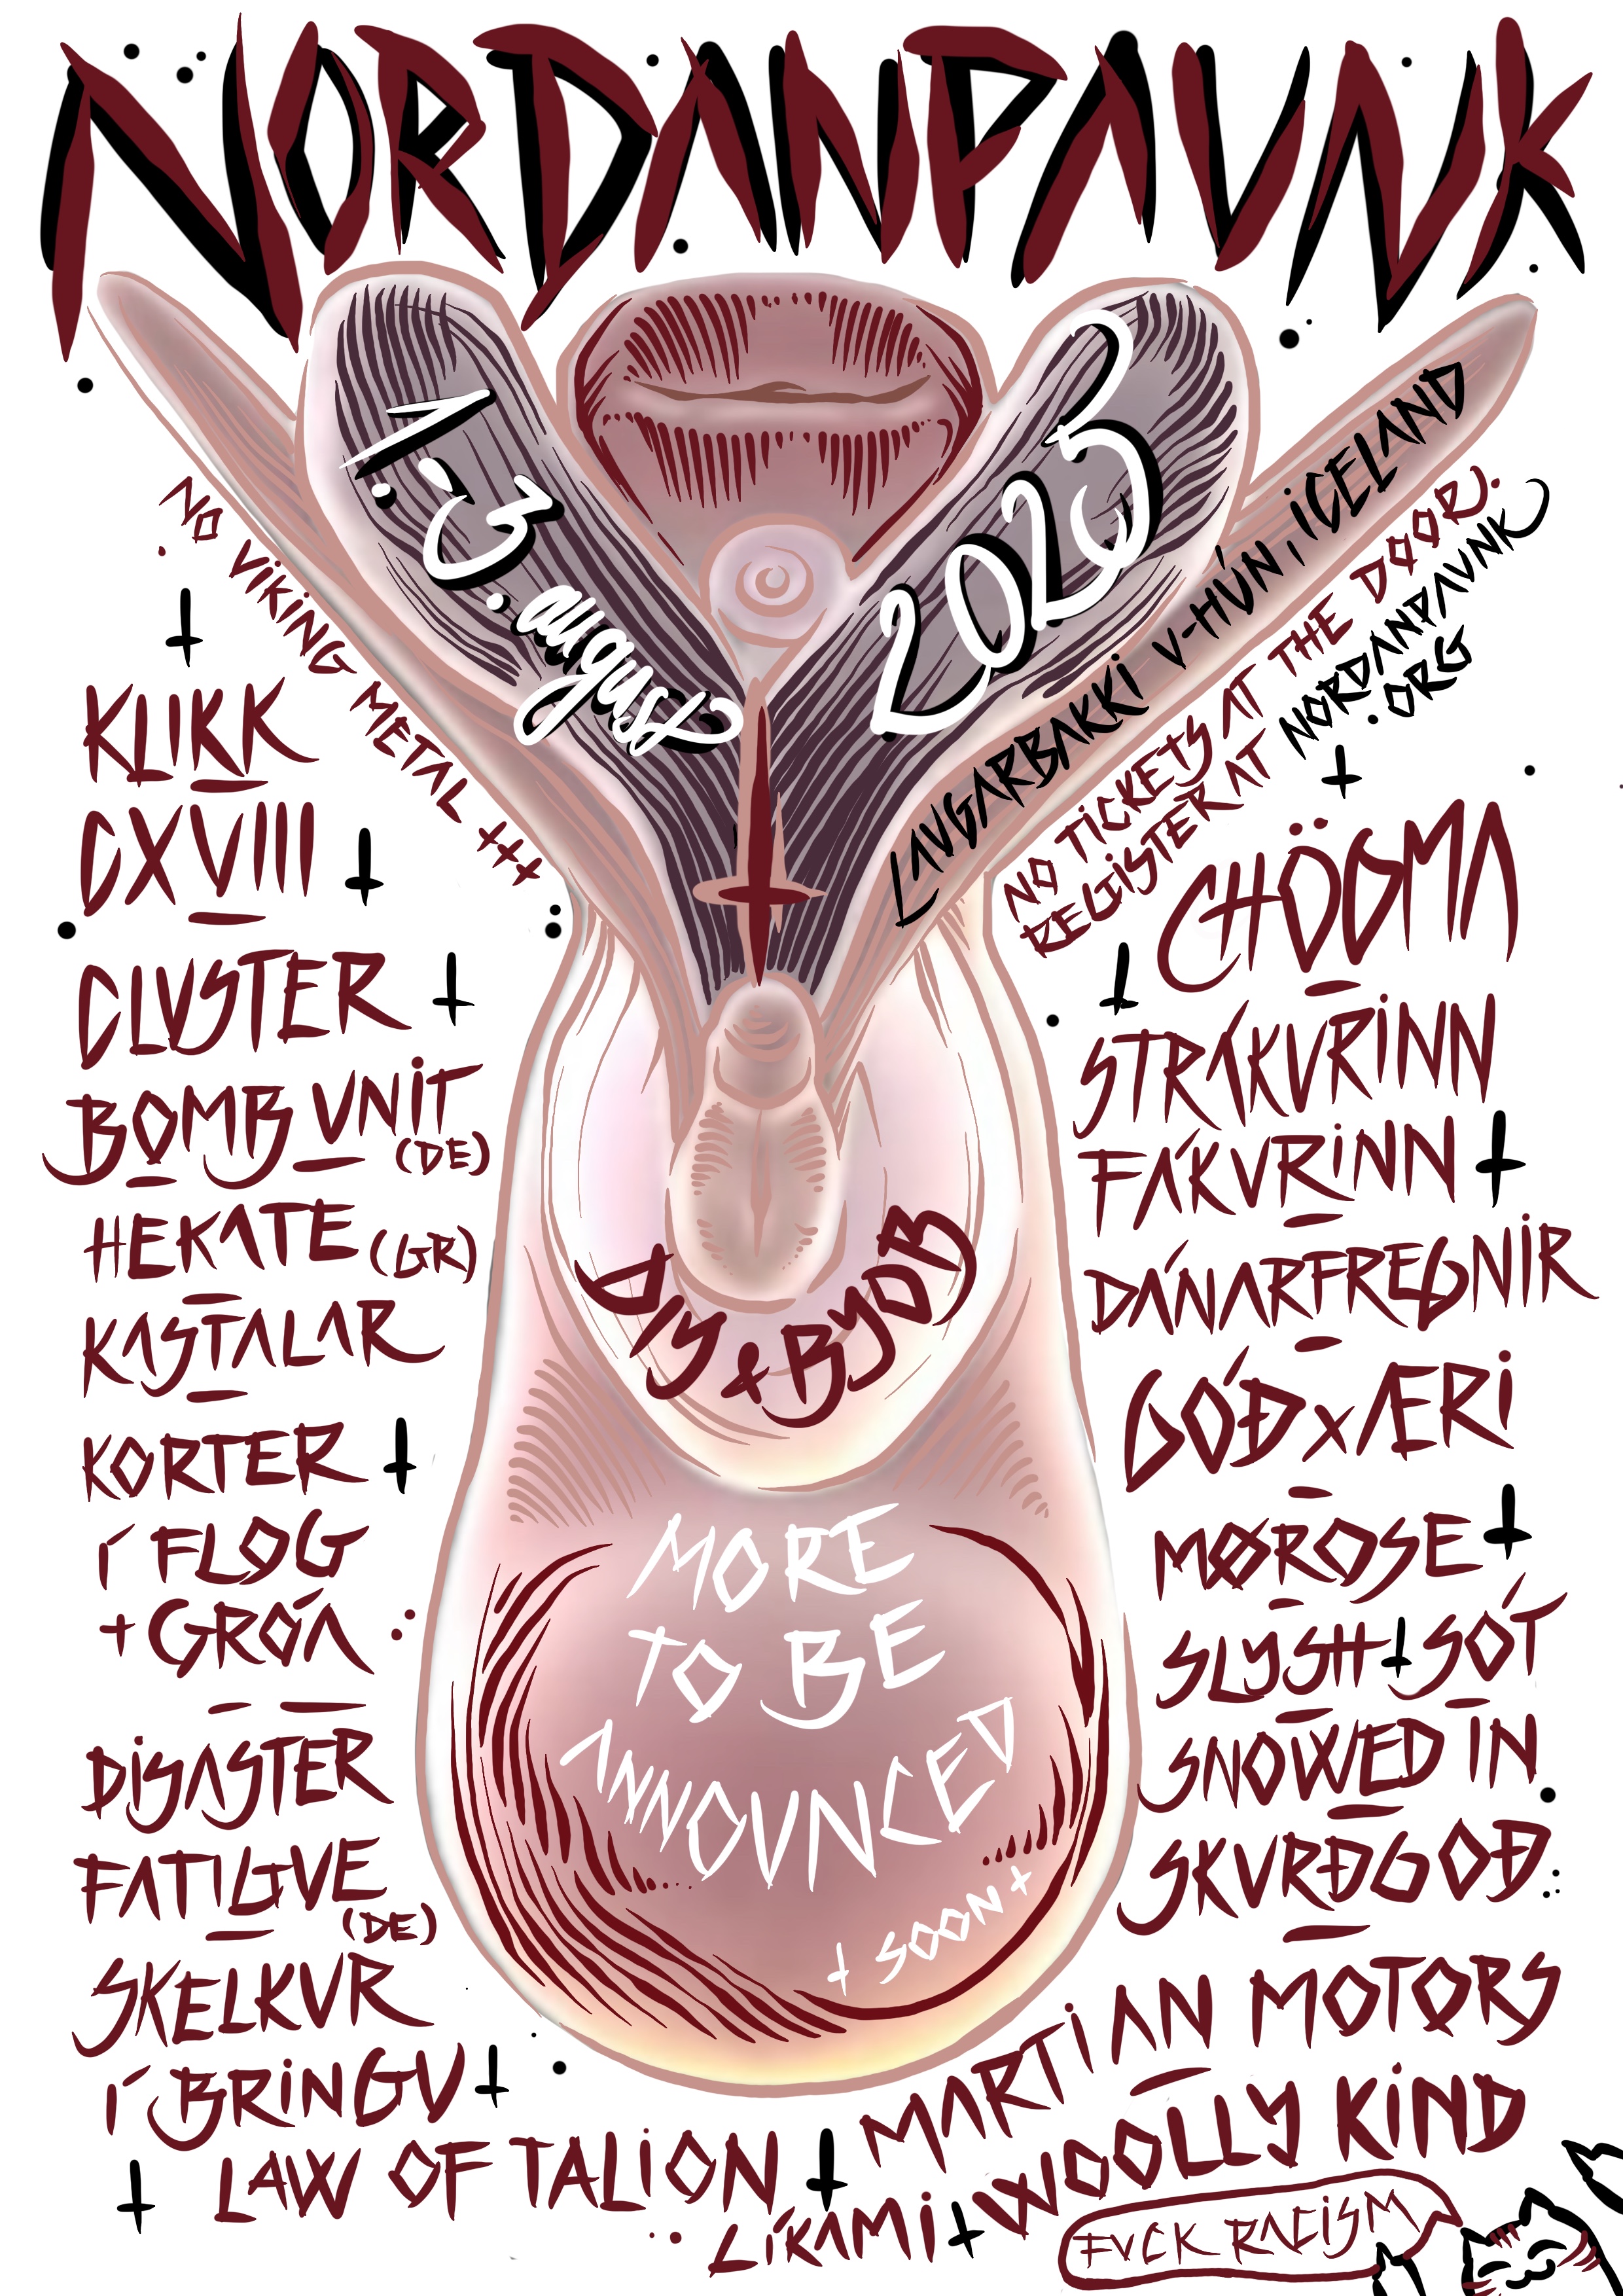 NORDANPAUNK
1.-3. august
2025
NO VIKING METAL +++
LAUGARBAKKI V-HÚN, ICELAND
NO TICKETS AT THE DOOR.
REGISTER AT NORDANPAUNK
.ORG
KLIKK
CXVIII
CLUSTER
BOMB UNIT
(DE)
HEKATE (GR)
KASTALAR
KORTER
Í FLOG
+ GRÓA
DISASTER
FATIGUE
(DE)
SKELKUR
Í BRINGU
LAW OF TALION
DIY & BYOB
MORE
TO BE
ANNOUNCED
+ SOON +
CHÖGMA
STRÁKURINN
FÁKURINN
DÁNARFREGNIR
GÓÐ x ÆRI
MØROSE
SLYSH + SÓT
SNOWED IN
SKURÐGOÐ
MARTIAN MOTORS
WOOLLY KIND
LÍKAMI
FUCK RACISM